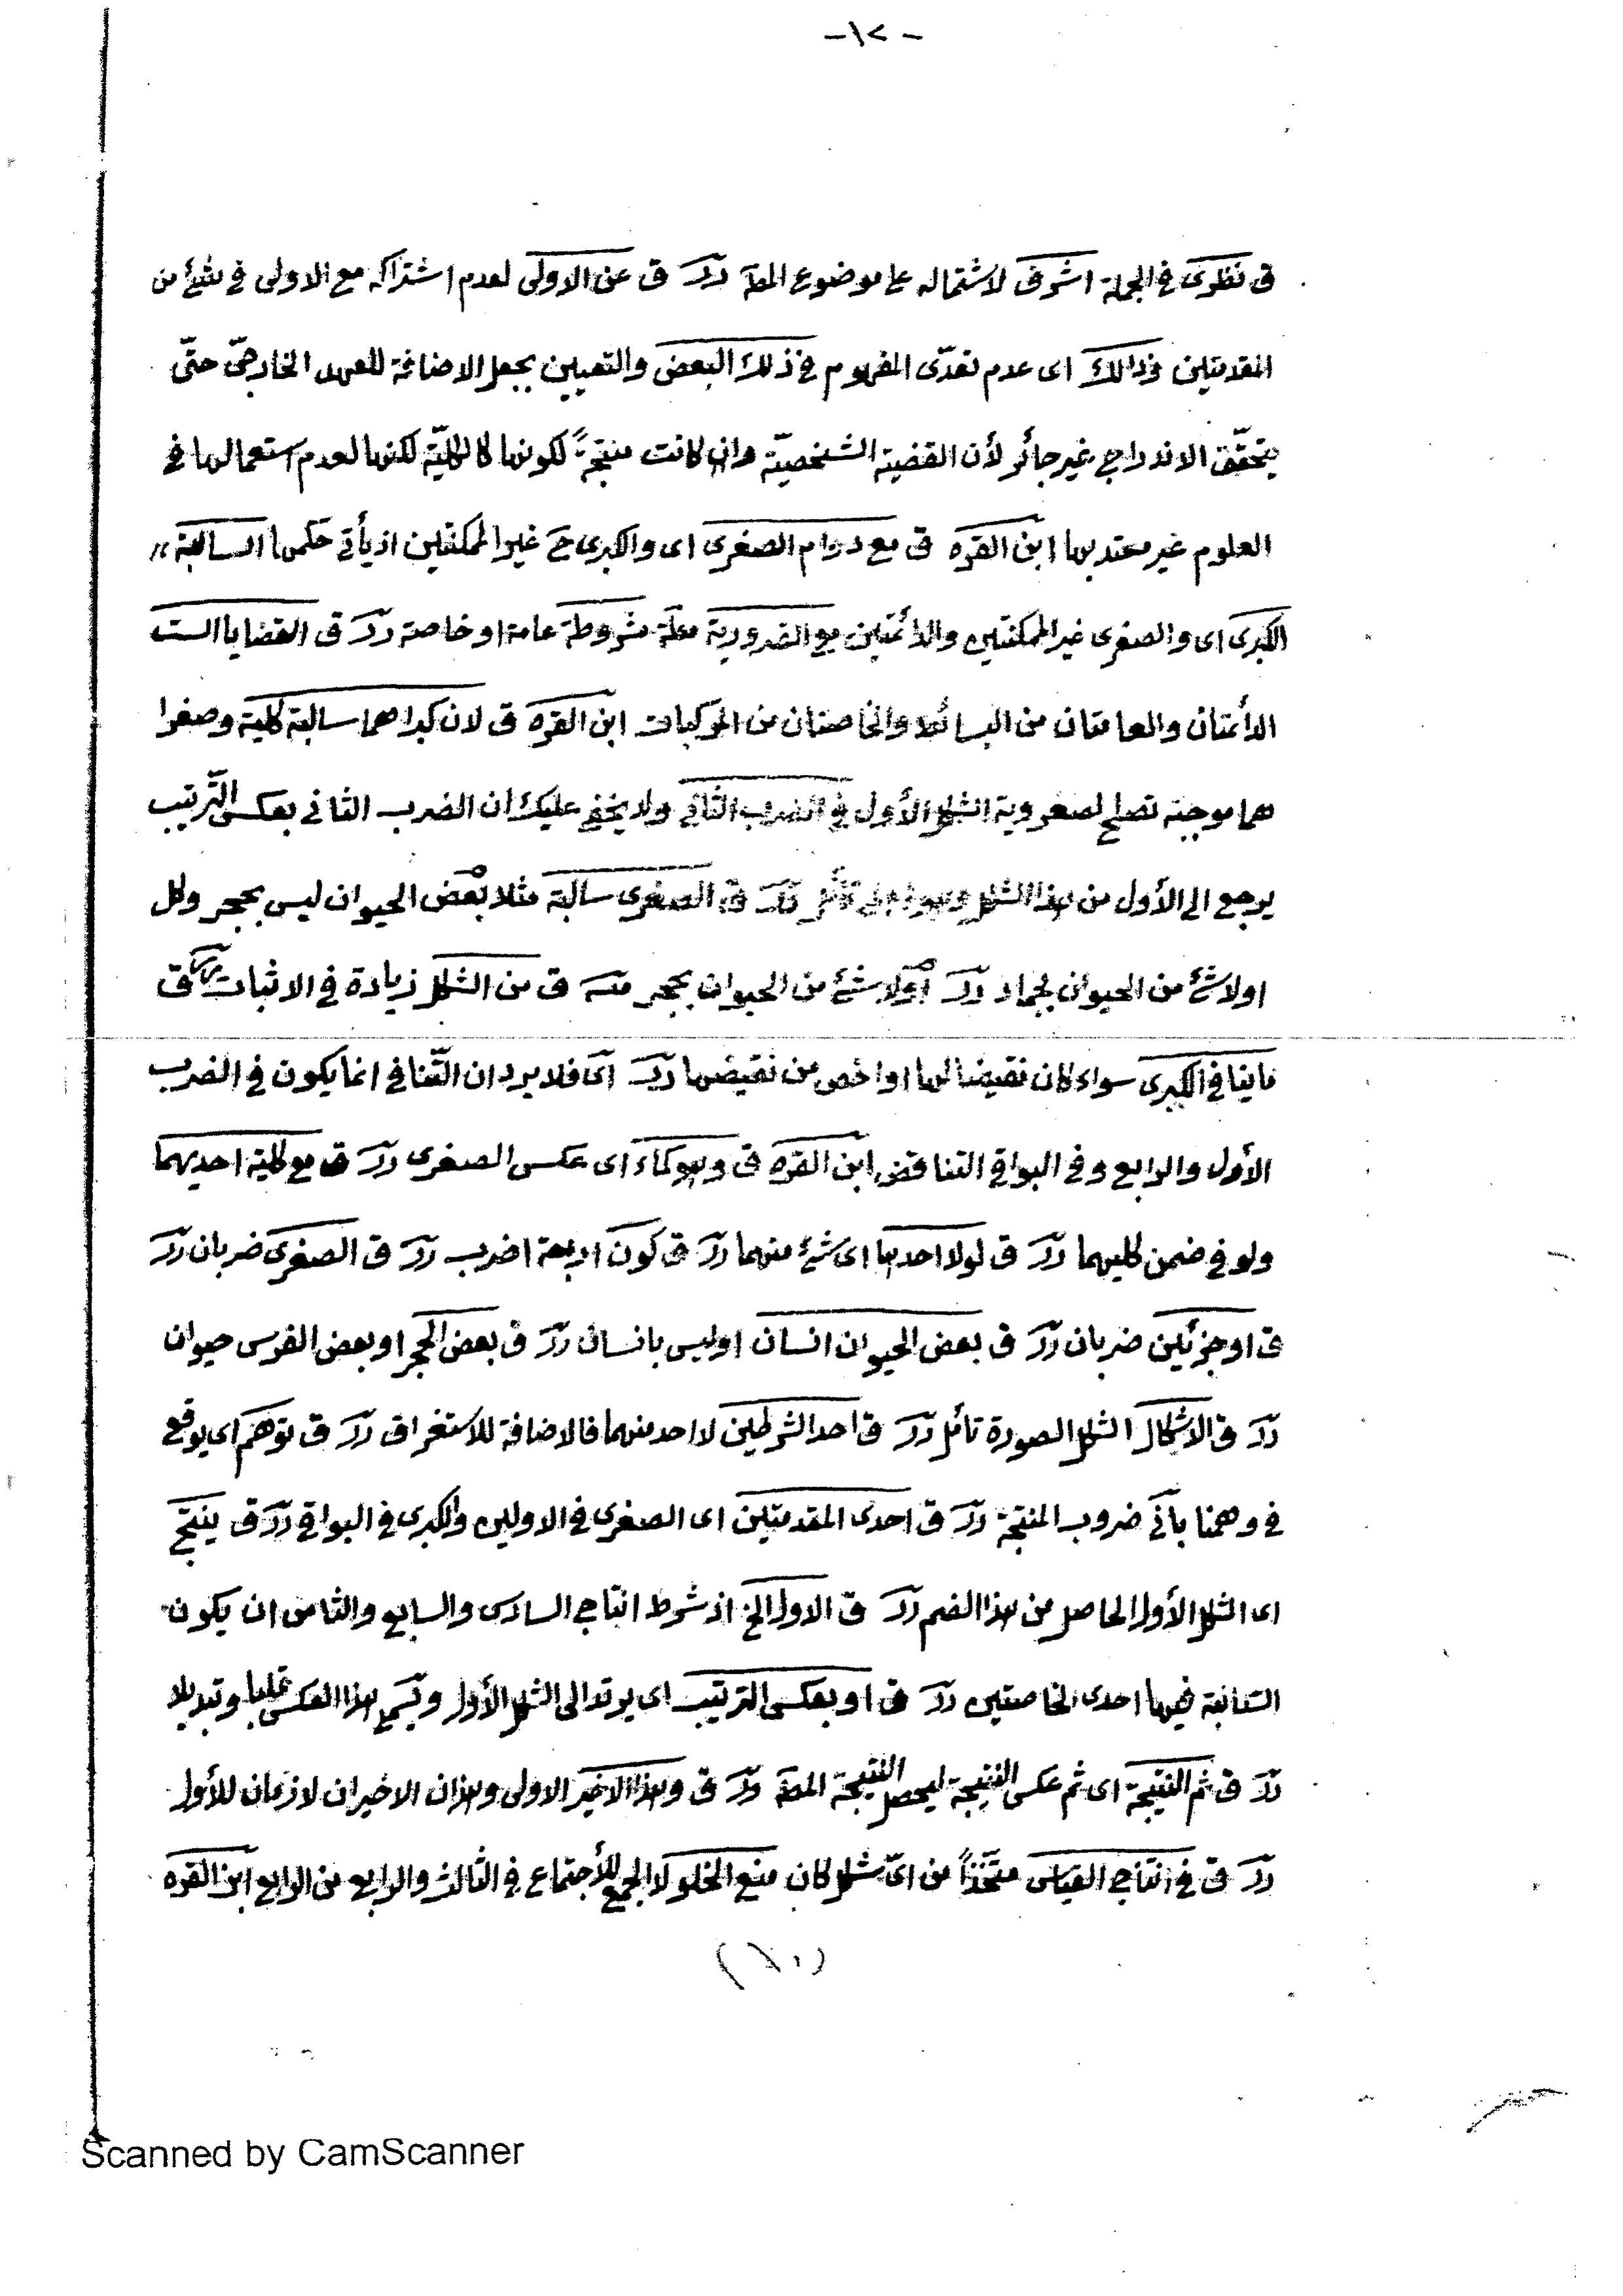 -١٢-
ق نظرى فى الجملة اشرف لاشتماله على موضوع المط رَرَ ق عن الاولى لعدم اشتراكه مع الاولى فى شئ من
المقدمتين فذالك اى عدم تعدّى المفهوم فى ذلك البعض والتعيين بجعل الاضافة للعهد الخارجىّ حتّى
يتحقّق الاندراج غير جائز لأن القضية الشخصيّة وان كانت منتجةً لكونها كالكليّة لكنها لعدم استعمالها فى
العلوم غير معتد بها ابن القره ق مع دوام الصغرى اى والكبرى ح غير الممكنتين اذ يأتى حكمها السالبة //
الكبرى اى والصغرى غير الممكنتين والدائمتين مع الضرورية مط مشروطة عامة او خاصة رَرَ ق القضايا الست
الدائمتان والعامتان من البسائط والخاصتان من المركبات ابن القره ق لان كبراهما سالبة كلية وصغرا
هما موجبة تصلح لصغروية الشكل الأول فى الضرب الثانى ولا يخفى عليك ان الضرب الثانى بعكس التّرتيب
يرجع الى الأول من هذا الشكل رَرَ ق الصغرى سالبة مثلا بعض الحيوان ليس بحجر وكل
اولا شئ من الحيوان بجماد رَرَ اولا شئ من الحيوان بحجر منه ق من الشكل زيادة فى الاثبات ررَ ق
ما ينافى الكبرى سواء كان نقيضا لها او اخص من نقيضها رَرَ اى فلا يرد ان التّنافى انما يكون فى الضرب
الأول والرابع وفى البواقى التناقض ابن القره ق وهو كماء اى عكس الصغرى رَرَ ق مع كلية احديهما
ولو فى ضمن كليهما رَرَ ق لولا احديها اى شئ منهما رَرَ ق كون اربعة اضرب رَرَ ق الصغرى ضربان رَرَ
ق او جزئين ضربان رَرَ ق بعض الحيوان انسان او ليس بانسان رَرَ ق بعض الحجر او بعض الفرس حيوان
رَرَ ق الاشكال الشكل الصورة تأمل رَرَ ق احد الشرطين لا احد منهما فالاضافة للاستغراق رَرَ ق توهم اى يوقع
فى وهمنا بأنى ضروب المنتجة رَرَ ق احدى المقدمتين اى الصغرى فى الاوليين والكبرى فى البواقى رَرَ ق ينتج
اى الشكل الأول الحاصل من هذا الضم رَرَ ق الاول الخ اذ شرط انتاج السادس والسابع والثامن ان يكون
السّالبة فيها احدى الخاصتين رَرَ ق او بعكس الترتيب اى يرتد الى الشكل الأول ويسمى هذا العكس قلبا وتبديلا
رَرَ ق ثم النتيجة اى ثم عكس النتيجة ليحصل النتيجة المط رَرَ ق وهذا الاخير الاولى وهذان الاخيران لازمان للأول
رَرَ ق فى انتاج القياس متّخذاً من اىّ شكل كان منع الخلو لا الجمع للأجتماع فى الثالث والرابع من الرابع ابن القره
(١٠)
Scanned by CamScanner